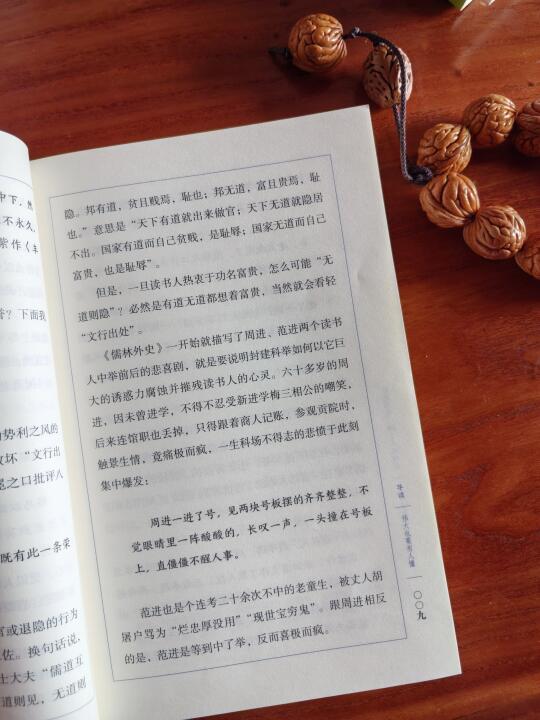 中下，然
不永久，
紫作《丰
下面我
势利之风的
坏“文行出
之口批评八
既有此一条荣
官或退隐的行为
佐。换句话说，
士大夫“儒道互
道则见，无道则
隐。邦有道，贫且贱焉，耻也；邦无道，富且贵焉，耻
也。”意思是“天下有道就出来做官；天下无道就隐居
不出。国家有道而自己贫贱，是耻辱；国家无道而自己
富贵，也是耻辱”。
但是，一旦读书人热衷于功名富贵，怎么可能“无
道则隐”？必然是有道无道都想着富贵，当然就会看轻
“文行出处”。
《儒林外史》一开始就描写了周进、范进两个读书
人中举前后的悲喜剧，就是要说明封建科举如何以它巨
大的诱惑力腐蚀并摧残读书人的心灵。六十多岁的周
进，因未曾进学，不得不忍受新进学梅三相公的嘲笑，
后来连馆职也丢掉，只得跟着商人记账，参观贡院时，
触景生情，竟痛极而疯，一生科场不得志的悲愤于此刻
集中爆发：
周进一进了号，见两块号板摆的齐齐整整，不
觉眼睛里一阵酸酸的，长叹一声，一头撞在号板
上，直僵僵不醒人事。
范进也是个连考二十余次不中的老童生，被丈人胡
屠户骂为“烂忠厚没用”“现世宝穷鬼”。跟周进相反
的是，范进是等到中了举，反而喜极而疯。
导读
伟大也要有人懂
〇〇九